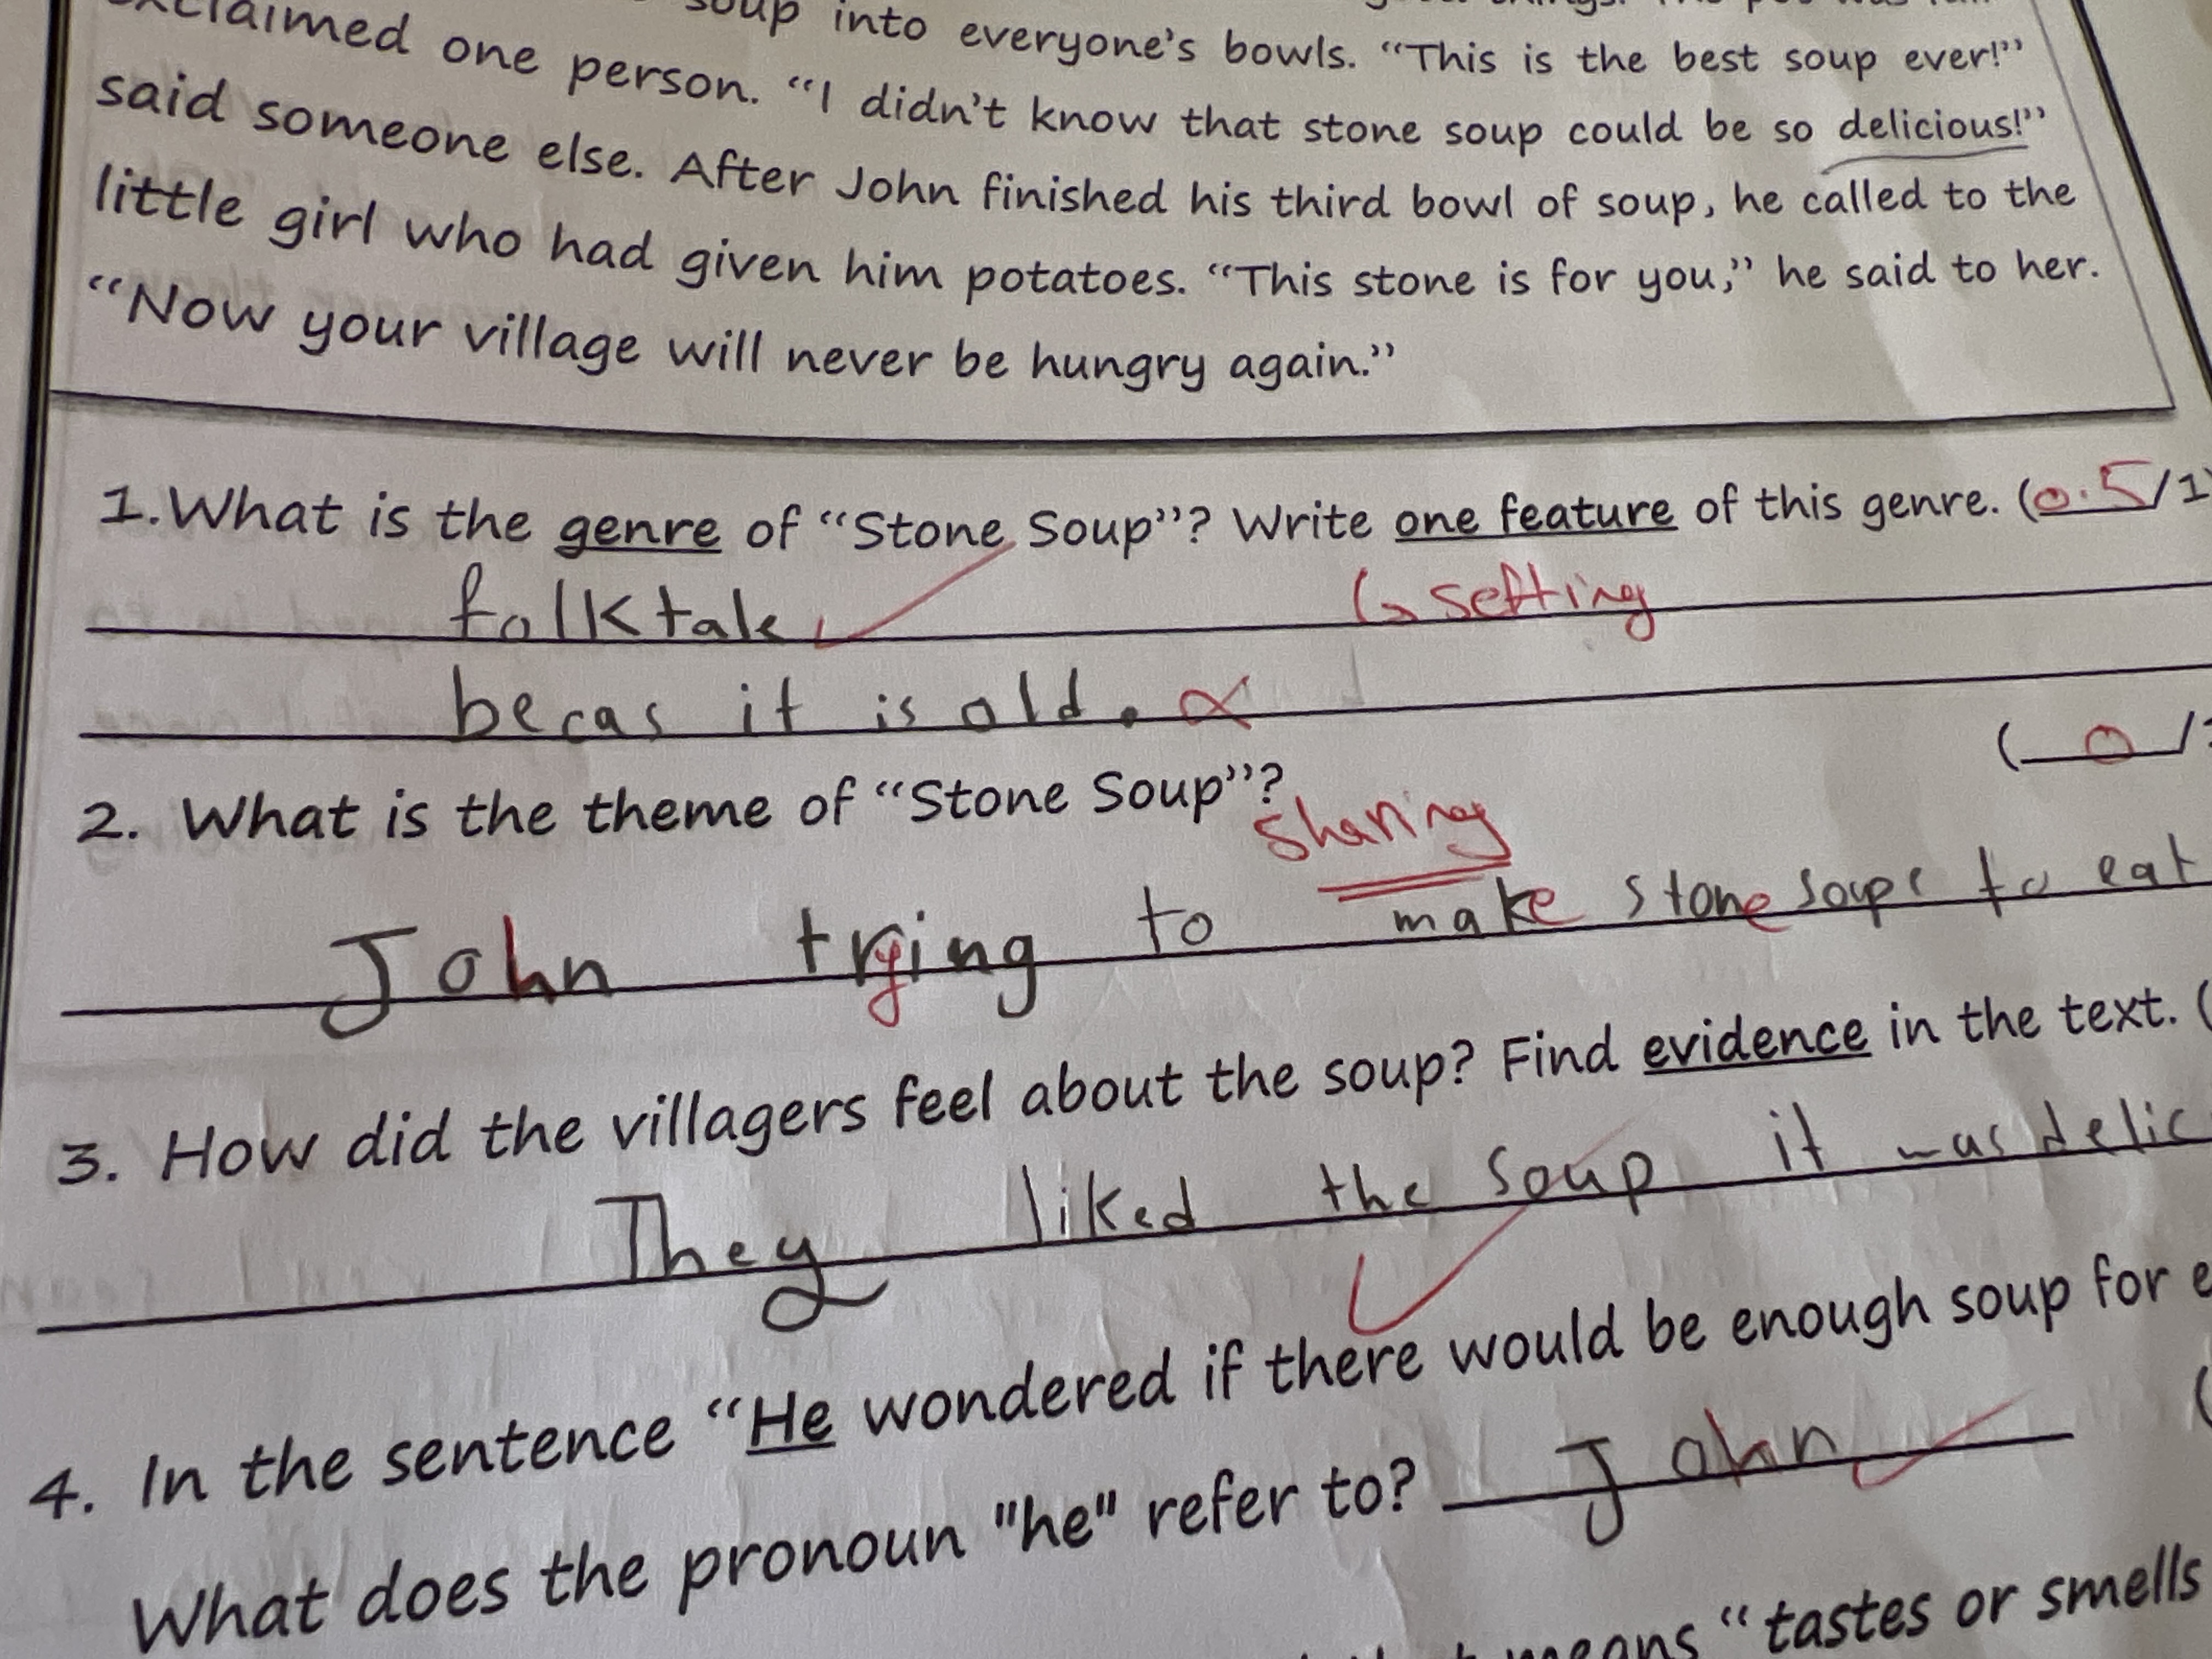 soup into everyone's bowls. "This is the best soup ever!"
exclaimed one person. "I didn't know that stone soup could be so delicious!"
said someone else. After John finished his third bowl of soup, he called to the
little girl who had given him potatoes. "This stone is for you," he said to her.
"Now your village will never be hungry again."
1.What is the genre of "Stone Soup"? Write one feature of this genre. (0.5/1)
folktale
setting
becas it is old.
(0/
2. What is the theme of "Stone Soup"?
sharing
John trying to make stone soupe to eat
3. How did the villagers feel about the soup? Find evidence in the text. (
They liked the soup it was delic
4. In the sentence "He wondered if there would be enough soup for e
What does the pronoun "he" refer to? John (
means "tastes or smells